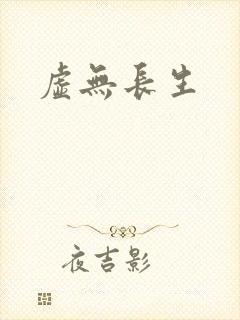 虛無長生
夜吉影